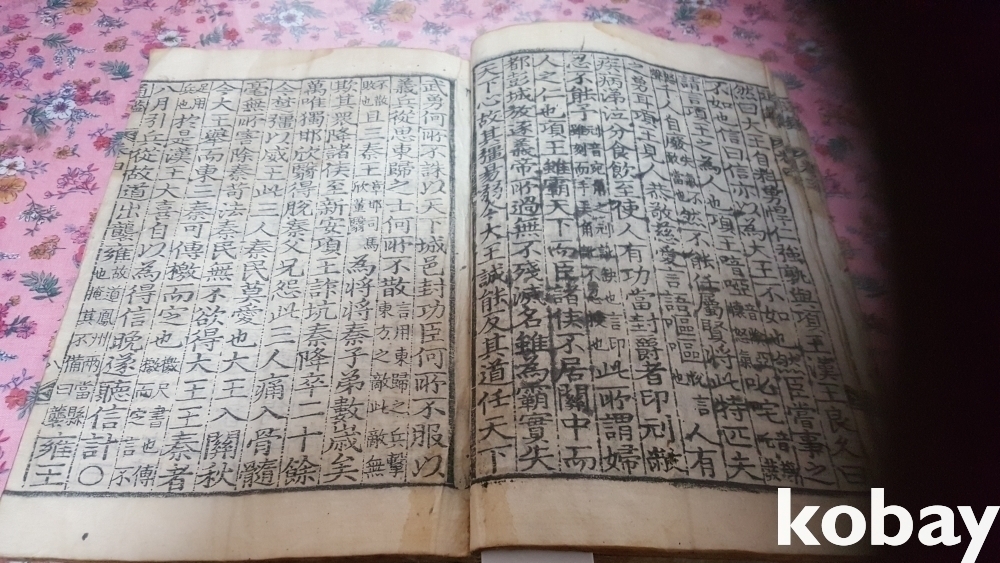 曰大王自料勇悍仁強孰與項王漢王良久曰
不如也信曰信亦以為大王不如也然臣嘗事之
請言項王之為人也項王喑噁叱咤
千人自廢然不能任屬賢將此特匹夫
之勇耳項王見人恭敬慈愛言語嘔嘔人有
疾病涕泣分食飲至使人有功當封爵者印刓敝
忍不能予此所謂婦
人之仁也項王雖霸天下而臣諸侯不居關中而
都彭城放逐義帝所過無不殘滅名雖為霸實失
天下心故其彊易弱今大王誠能反其道任天下
武勇何所不誅以天下城邑封功臣何所不服以
義兵從思東歸之士何所不散言用東歸之兵擊東方之敵此敵無
不散敗也且三秦王章邯司馬欣董翳為將將秦子弟數歲矣
欺其衆降諸侯至新安項王詐坑秦降卒二十餘
萬唯獨邯欣翳得脫秦父兄怨此三人痛入骨髓
今楚彊以威王此三人秦民莫愛也大王入關秋
毫無所害除秦苛法秦民無不欲得大王王秦者
今大王舉而東三秦可傳檄而定也檄尺書也傳檄而定言不
足用兵也於是漢王大喜自以為得信晚遂聽信計〇
八月引兵從故道出襲雍故道鳳州兩當縣也掩其不備曰襲雍王
kobay